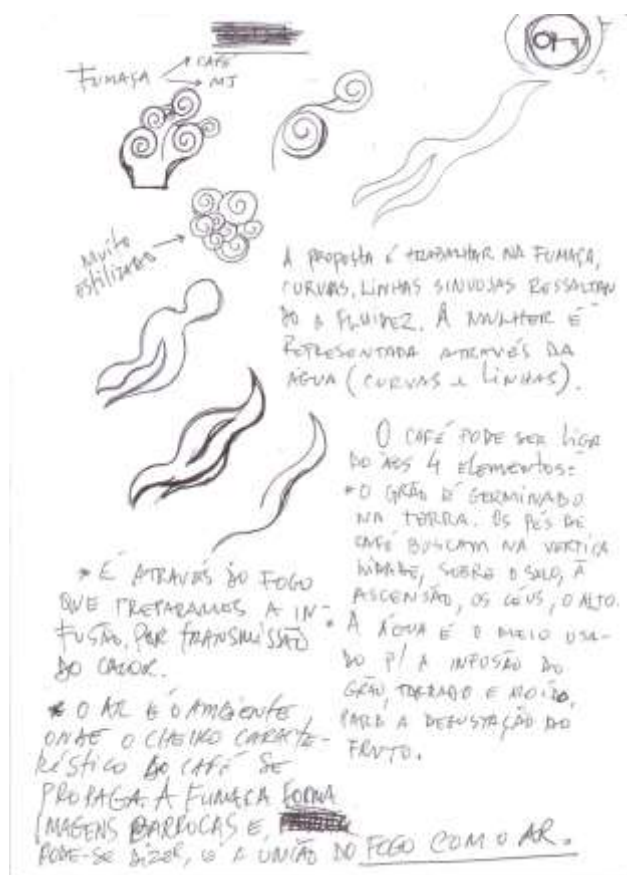 FUMAÇA
CAFÉ
MJ
Muito
estilizado
A PROPOSTA É TRABALHAR NA FUMAÇA,
CURVAS, LINHAS SINUOSAS RESSALTAN
DO A FLUIDEZ. A MULHER É
REPRESENTADA ATRAVÉS DA
ÁGUA (CURVAS e LINHAS).
O CAFÉ PODE SER LIGA
DO AOS 4 ELEMENTOS:
* O GRÃO É GERMINADO
NA TERRA. OS PÉS DE
CAFÉ BUSCAM NA VERTICA
LIDADE, SOBRE O SOLO, A
ASCENSÃO, OS CÉUS, O ALTO.
* A ÁGUA É O MEIO USA-
DO P/ A INFUSÃO DO
GRÃO, TORRADO E MOÍDO,
PARA A DEGUSTAÇÃO DO
FRUTO.
* É ATRAVÉS DO FOGO
QUE PREPARAMOS A IN-
FUSÃO, POR TRANSMISSÃO
DO CALOR.
* O AR É O AMBIENTE
ONDE O CHEIRO CARACTE-
RÍSTICO DO CAFÉ SE
PROPAGA. A FUMAÇA FORMA
IMAGENS BARROCAS E,
PODE-SE DIZER, É A UNIÃO DO FOGO COM O AR.